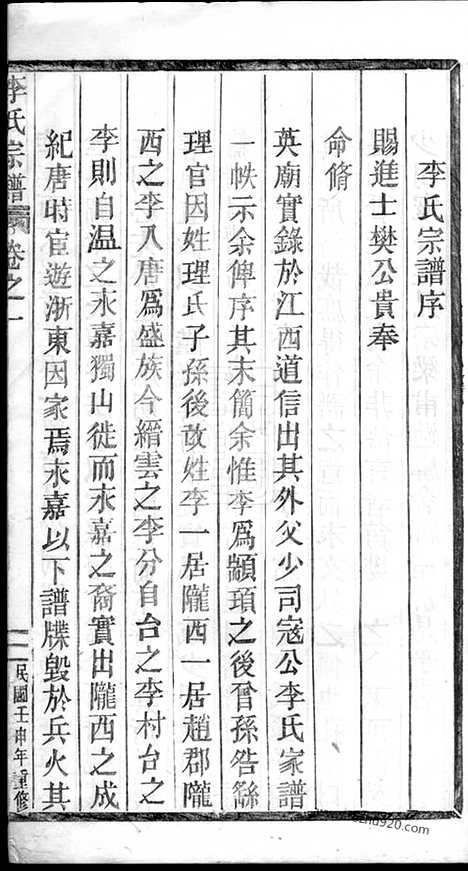 李氏宗譜序
賜進士樊公貴奉
命脩
英廟實錄於江西道信出其外父少司寇公李氏家譜
一帙示余俾序其末簡余惟李爲顓頊之後曾孫咎繇
理官因姓理氏子孫後改姓李一居隴西一居趙郡隴
西之李入唐爲盛族今縉雲之李分自台之李村台之
李則自温之永嘉獨山徙而永嘉之裔實出隴西之成
紀唐時宦遊浙東因家焉永嘉以下譜牒毀於兵火其
李氏宗譜 卷之一
民國壬申年重修